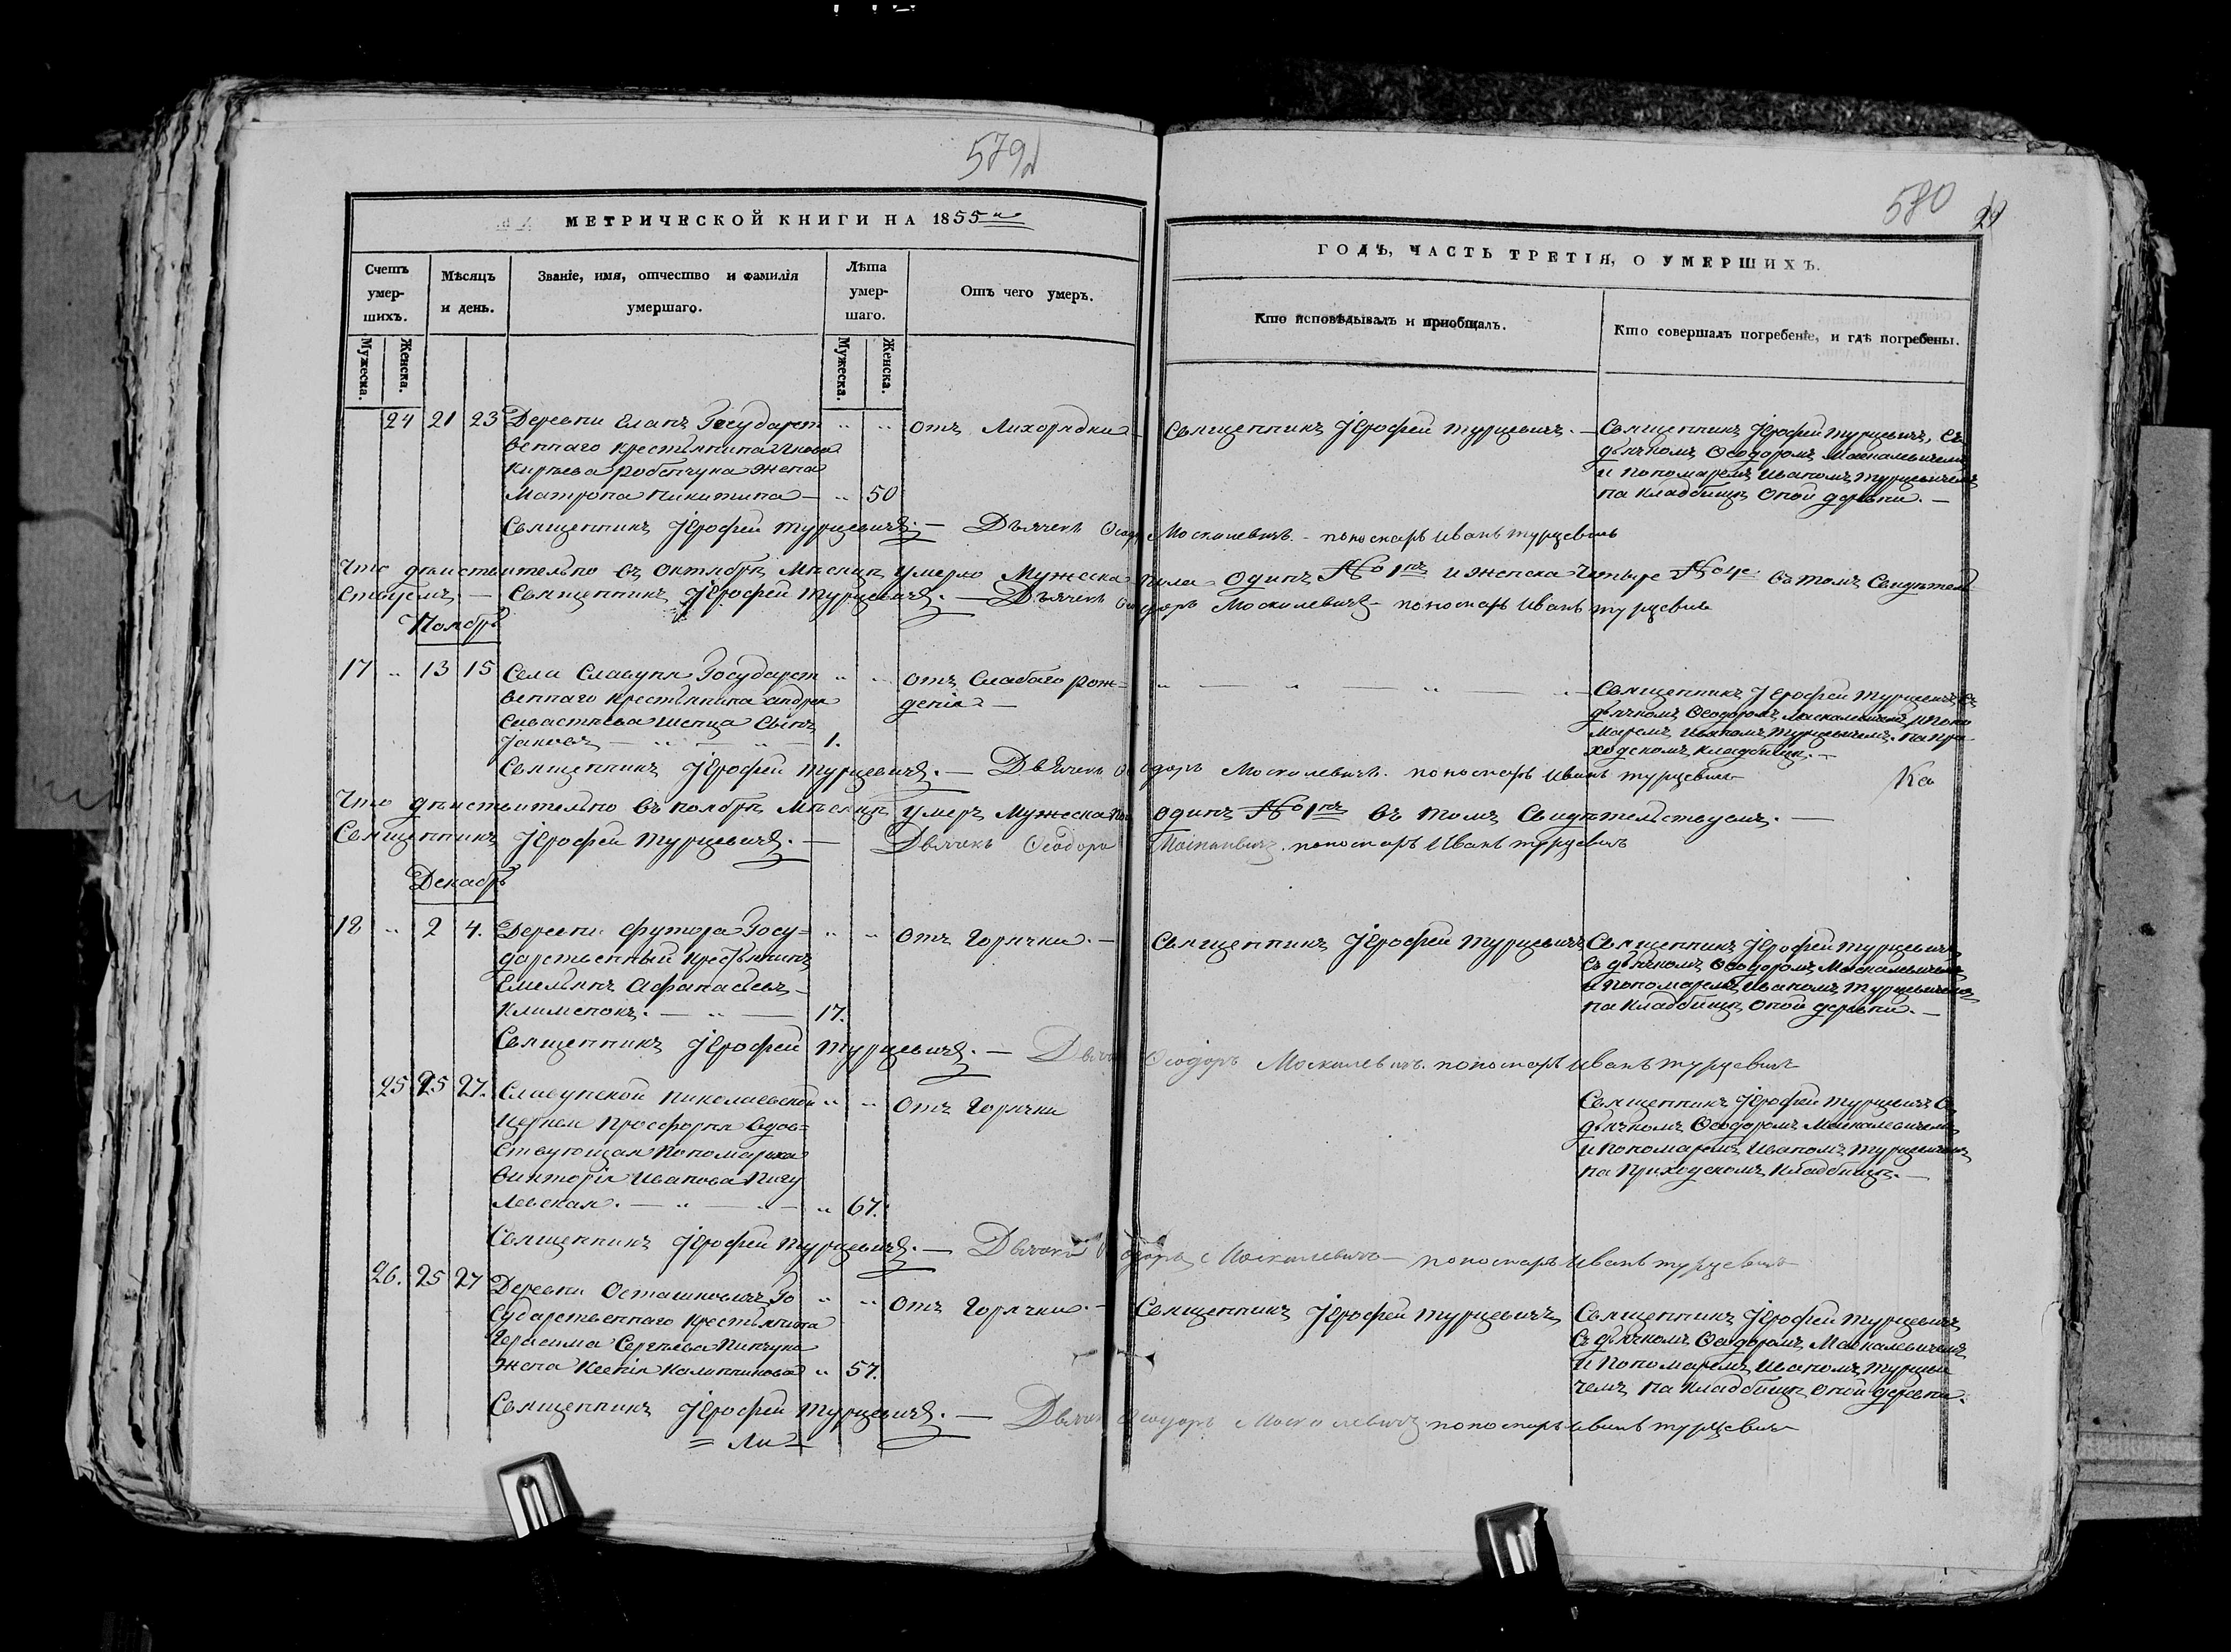 579
МЕТРИЧЕСКОЙ КНИГИ НА 1855
Счетъ умер-шихъ.
Мѣсяцъ и день.
Званіе, имя, отчество и фамилія умершаго.
Лѣта умер-шаго.
Отъ чего умеръ.
Мужеска.
Женска.
Мужеска.
Женска.
24 21 23 Деревни Еланъ Государст
веннаго крестьянина
жена
Матрона Никитина — 50
отъ Лихорадки
Священникъ Іерофей Турцевичъ. — Дьячекъ
Что дѣиствительно въ Октябрѣ Мѣсяцѣ умерло Мужеска
Священникъ Іерофей Турцевичъ. — Дьячекъ
Ноябрь
17 13 15 Села Славупя Государст
веннаго крестьянина андрея
сынъ
Іаковъ — 1.
отъ Слабаго рож=
денія —
Священникъ Іерофей Турцевичъ. — Дьячекъ
Что дѣиствительно въ ноябрѣ Мѣсяцѣ умеръ Мужеска
Священникъ Іерофей Турцевичъ. — Дьячекъ Ѳеодоръ
Декабрь
18 2 4. Деревни Футора Госу=
дарственный крестьянинъ
Емельянъ Афанасьевъ
Клименокъ. — 17.
отъ Горячки. —
Священникъ Іерофей Турцевичъ. —
25 25 27. Славупской Николаевской
церкви Просфорня вдов=
ствующая Пономарка
Викторія Иванова
левская. — 67.
отъ Горячки
Священникъ Іерофей Турцевичъ. — Дьячекъ
26. 25 27 Деревни Осташковичъ Го
сударственнаго крестьянина
Герасима Сергѣева Пинчука
жена Ксенія Калинникова 57.
отъ Горячки. —
Священникъ Іерофей Турцевичъ. —
580
ГОДЪ, ЧАСТЬ ТРЕТІЯ, О УМЕРШИХЪ.
Кто исповѣдывалъ и приобщалъ.
Кто совершалъ погребеніе, и гдѣ погребены.
Священникъ Іерофей Турцевичъ. —
Священникъ Іерофей Турцевичъ, съ
дьячкомъ Ѳеодоромъ Москалевичемъ
и Пономаремъ Иваномъ Турцевичемъ
на кладбищѣ оной деревни. —
Москалевичъ. — пономарь Иванъ Турцевичъ
пола Одинъ № 1 и женска четыре № 4 въ томъ Свидѣтель
ствуемъ. —
Москалевичъ — пономарь Иванъ Турцевичъ
Священникъ Іерофей Турцевичъ съ
дьячкомъ Ѳеодоромъ Москалевичемъ и Поно
маремъ Иваномъ Турцевичемъ. на при
ходскомъ кладбищѣ. —
Москалевичъ. пономарь Иванъ Турцевичъ
одинъ № 1 въ томъ Свидѣтельствуемъ. —
пономарь Иванъ Турцевичъ
Священникъ Іерофей Турцевичъ
Священникъ Іерофей Турцевичъ
съ дьячкомъ Ѳеодоромъ Москалевичемъ
и Пономаремъ Иваномъ Турцевичемъ
на кладбищѣ оной деревни. —
Ѳеодоръ Москалевичъ. пономарь Иванъ Турцевичъ
Священникъ Іерофей Турцевичъ съ
дьячкомъ Ѳеодоромъ Москалевичемъ
и Пономаремъ Иваномъ Турцевичемъ
на Приходскомъ кладбищѣ. —
Москалевичъ — пономарь Иванъ Турцевичъ
Священникъ Іерофей Турцевичъ
Священникъ Іерофей Турцевичъ
съ дьячкомъ Ѳеодоромъ Москалевичемъ
и Пономаремъ Иваномъ Турцеви
чемъ на кладбищѣ оной деревни.
Ѳеодоръ Москалевичъ пономарь Иванъ Турцевичъ